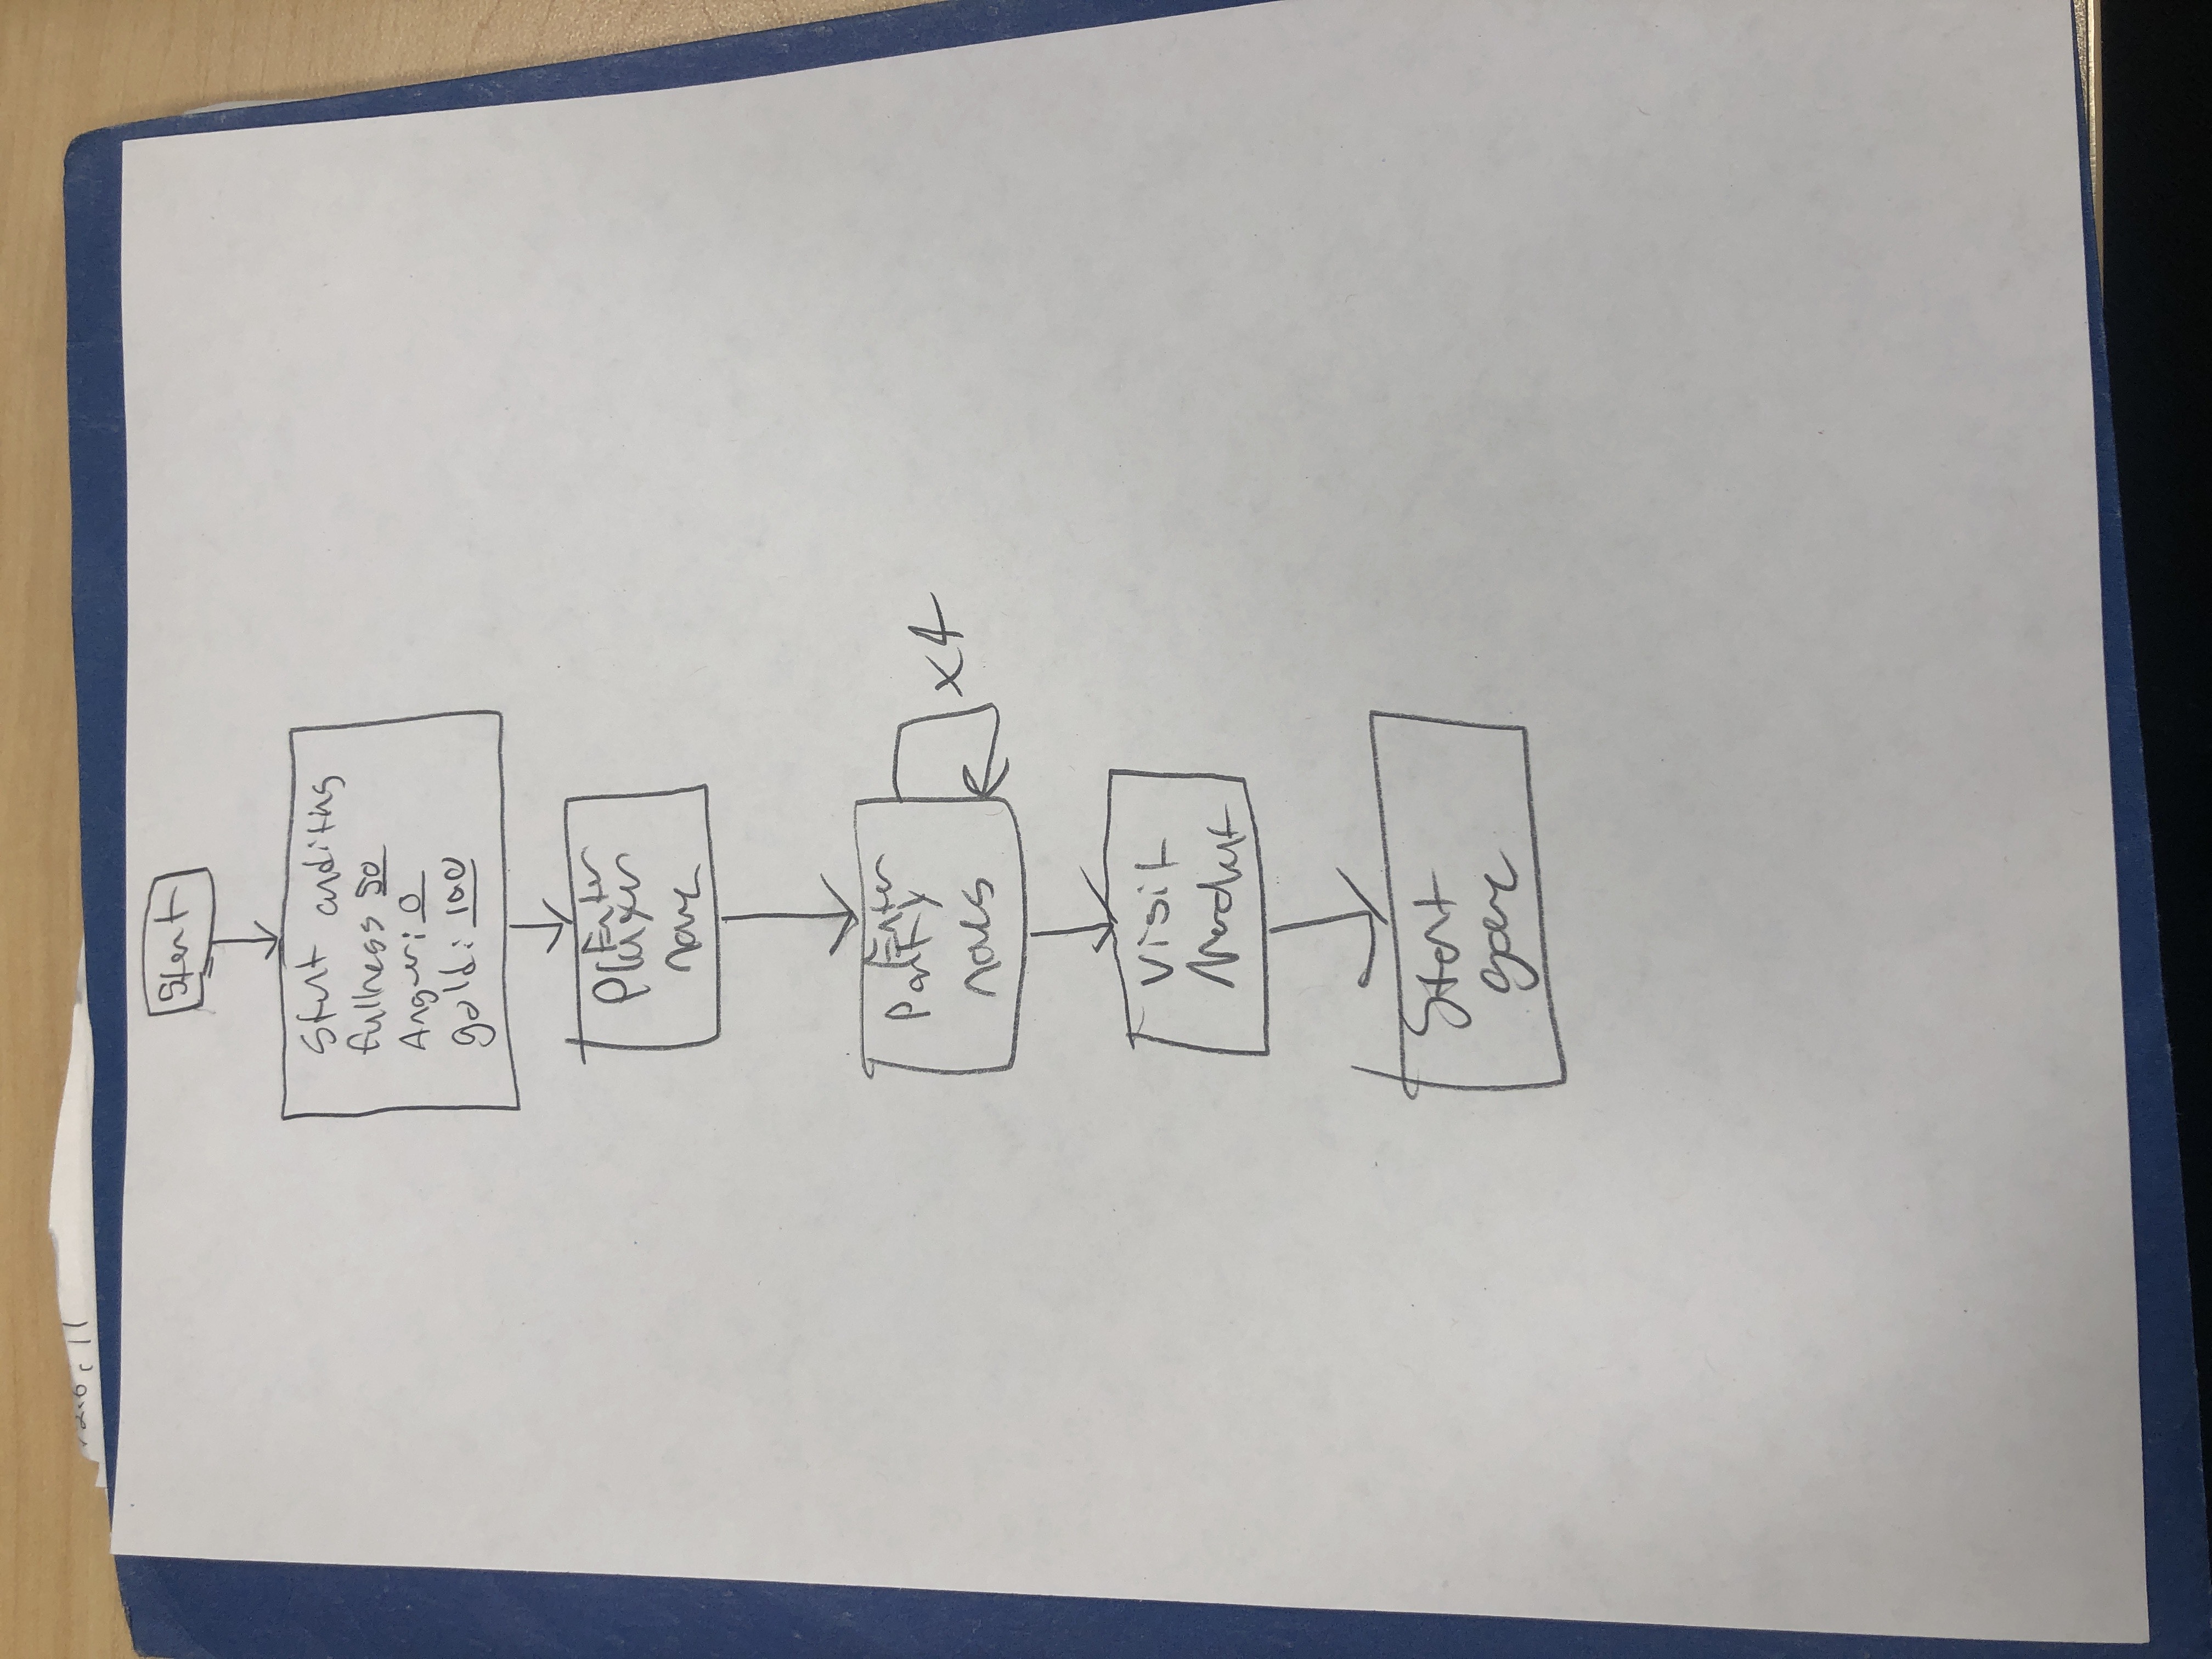 12.6, 11
Start
Start conditions
fullness 50
Anger: 0
gold: 100
Enter
Player
name
Enter
Party
names
x4
Visit
Merchant
Start
game